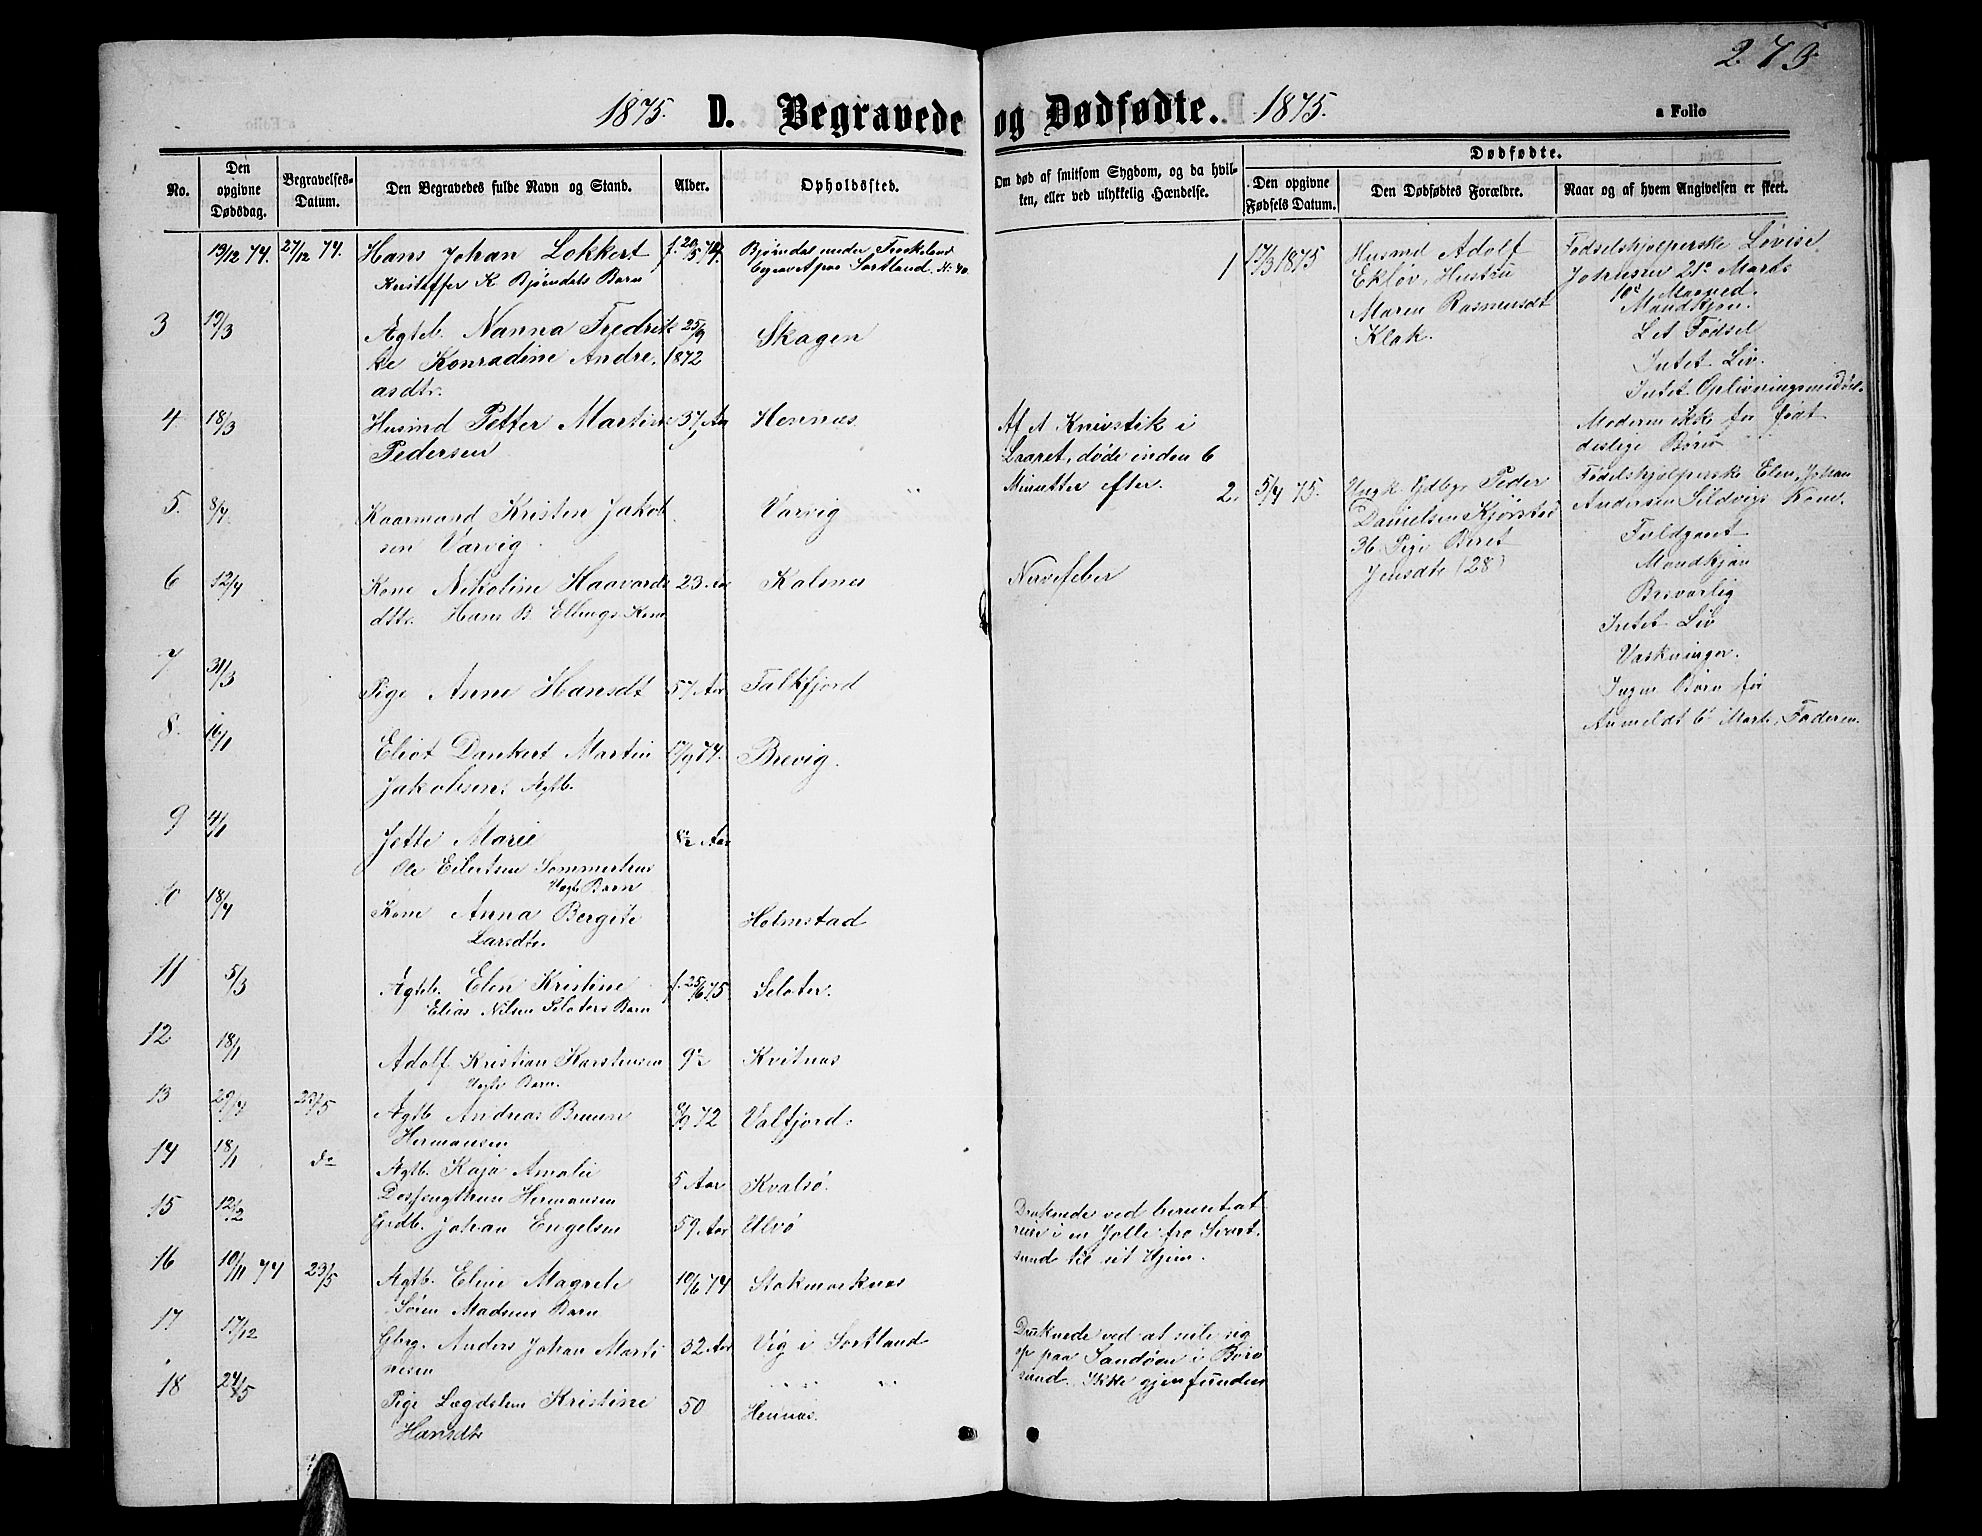 273
1875. D. Begravede og Dødfødte. 1875.
a Folio
No.
Den opgivne Dødsdag.
Begravelses-Datum.
Den Begravedes fulde Navn og Stand.
Alder.
Opholdssted.
Om død af smitsom Sygdom, og da hvilken, eller ved ulykkelig Hændelse.
Dødfødte.
Den opgivne Fødsels Datum.
Den Dødfødtes Forældre.
Naar og af hvem Angivelsen er skeet.
19/12 74. 27/12 74. Hans Johan Lokkert
Kristoffer K Bjørndals Barn
Bjørndal under
Sortland
3 19/3 Ægteb. Nanna Fredrik 25/9 Skagen
ke Konradine Andre. 1872
asdtr.
4 18/3 Husmd Petter Martin 37 Aar Hennæs Af A Knivstik i
Pedersen Laaret, døde inden 6
Minutter efter.
5. 8/4 Kaarmand Kristen Jakob Varvig
sen Varvig.
6 12/4 Kone Nikoline Haavards 23 Aar Kalnes Nervefeber
dtr. Hans B. Ellings Kone
7 31/3 Pige Anne Hansdt 57 Aar Falkfjord
8. 16/1 Eliot Dankert Martin 17/9 74. Brevig.
Jakobsen. Ægtb.
9 4/1 Jette Marie Aar
Ole Eilertsen Sommerhus
Uægte Barn
10 18/4 Kone Anna Bergite Holmstad
Larsdtr.
11 5/3 Ægteb. Elen Kristine f. 25/6 75. Seloter.
Elias Nilsen Seloters Barn
12 18/1 Adolf Kristian Karstensen Kvitnæs
Uægte Barn.
13 29/4 23/5 Ægtb. Andreas Bruun 8/9 72 Valfjord.
Hermansen
14 18/1 do Ægtb. Kaja Amalie 5 Aar Kvalsø.
Hermansen
15 12/2 Grdb. Johan Engelsen 59 Aar Ulvø Druknede ved
i en Jolle fra Svart
sund til sit Hjem.
16 10/11 74 23/5 Ægtb. Eline Magrete 10/6 74 Stokmarknæs
Søren Madsens Barn
17 17/12 Gbrg. Anders Johan Marti 32 Aar Vig i Sortland Druknede ved at seile sig
nesen op paa Sandøen i Børø
sund. Ikke gjenfunden
18 24/5 Pige Lægdslem Kristine 50 Hennæs.
Hansdtr
1 17/3 1875 Husmd Adolf Fødselshjælperske Lovise
Ekløv, Hustru Johnsen 21de Marts
Maren Rasmusdt 10de Maaned.
Klak. Mandkjøn.
Let Fødsel
Intet Liv.
Intet Oplivningsmiddel.
Moderen ikke før født
deslige Børn
2. 5/4 75. Ungk. Gdbg. Peder Fødselshjælperske Elen, Johan
Danielsen Kjørstad Andersen Sildvigs Kone.
36. Pige Beret Fuldgaaet
Jensdtr (28) Mandkjøn
Besværlig
Intet Liv
Vaskninger.
Ingen Børn før
Anmeldt 6te Faderen.